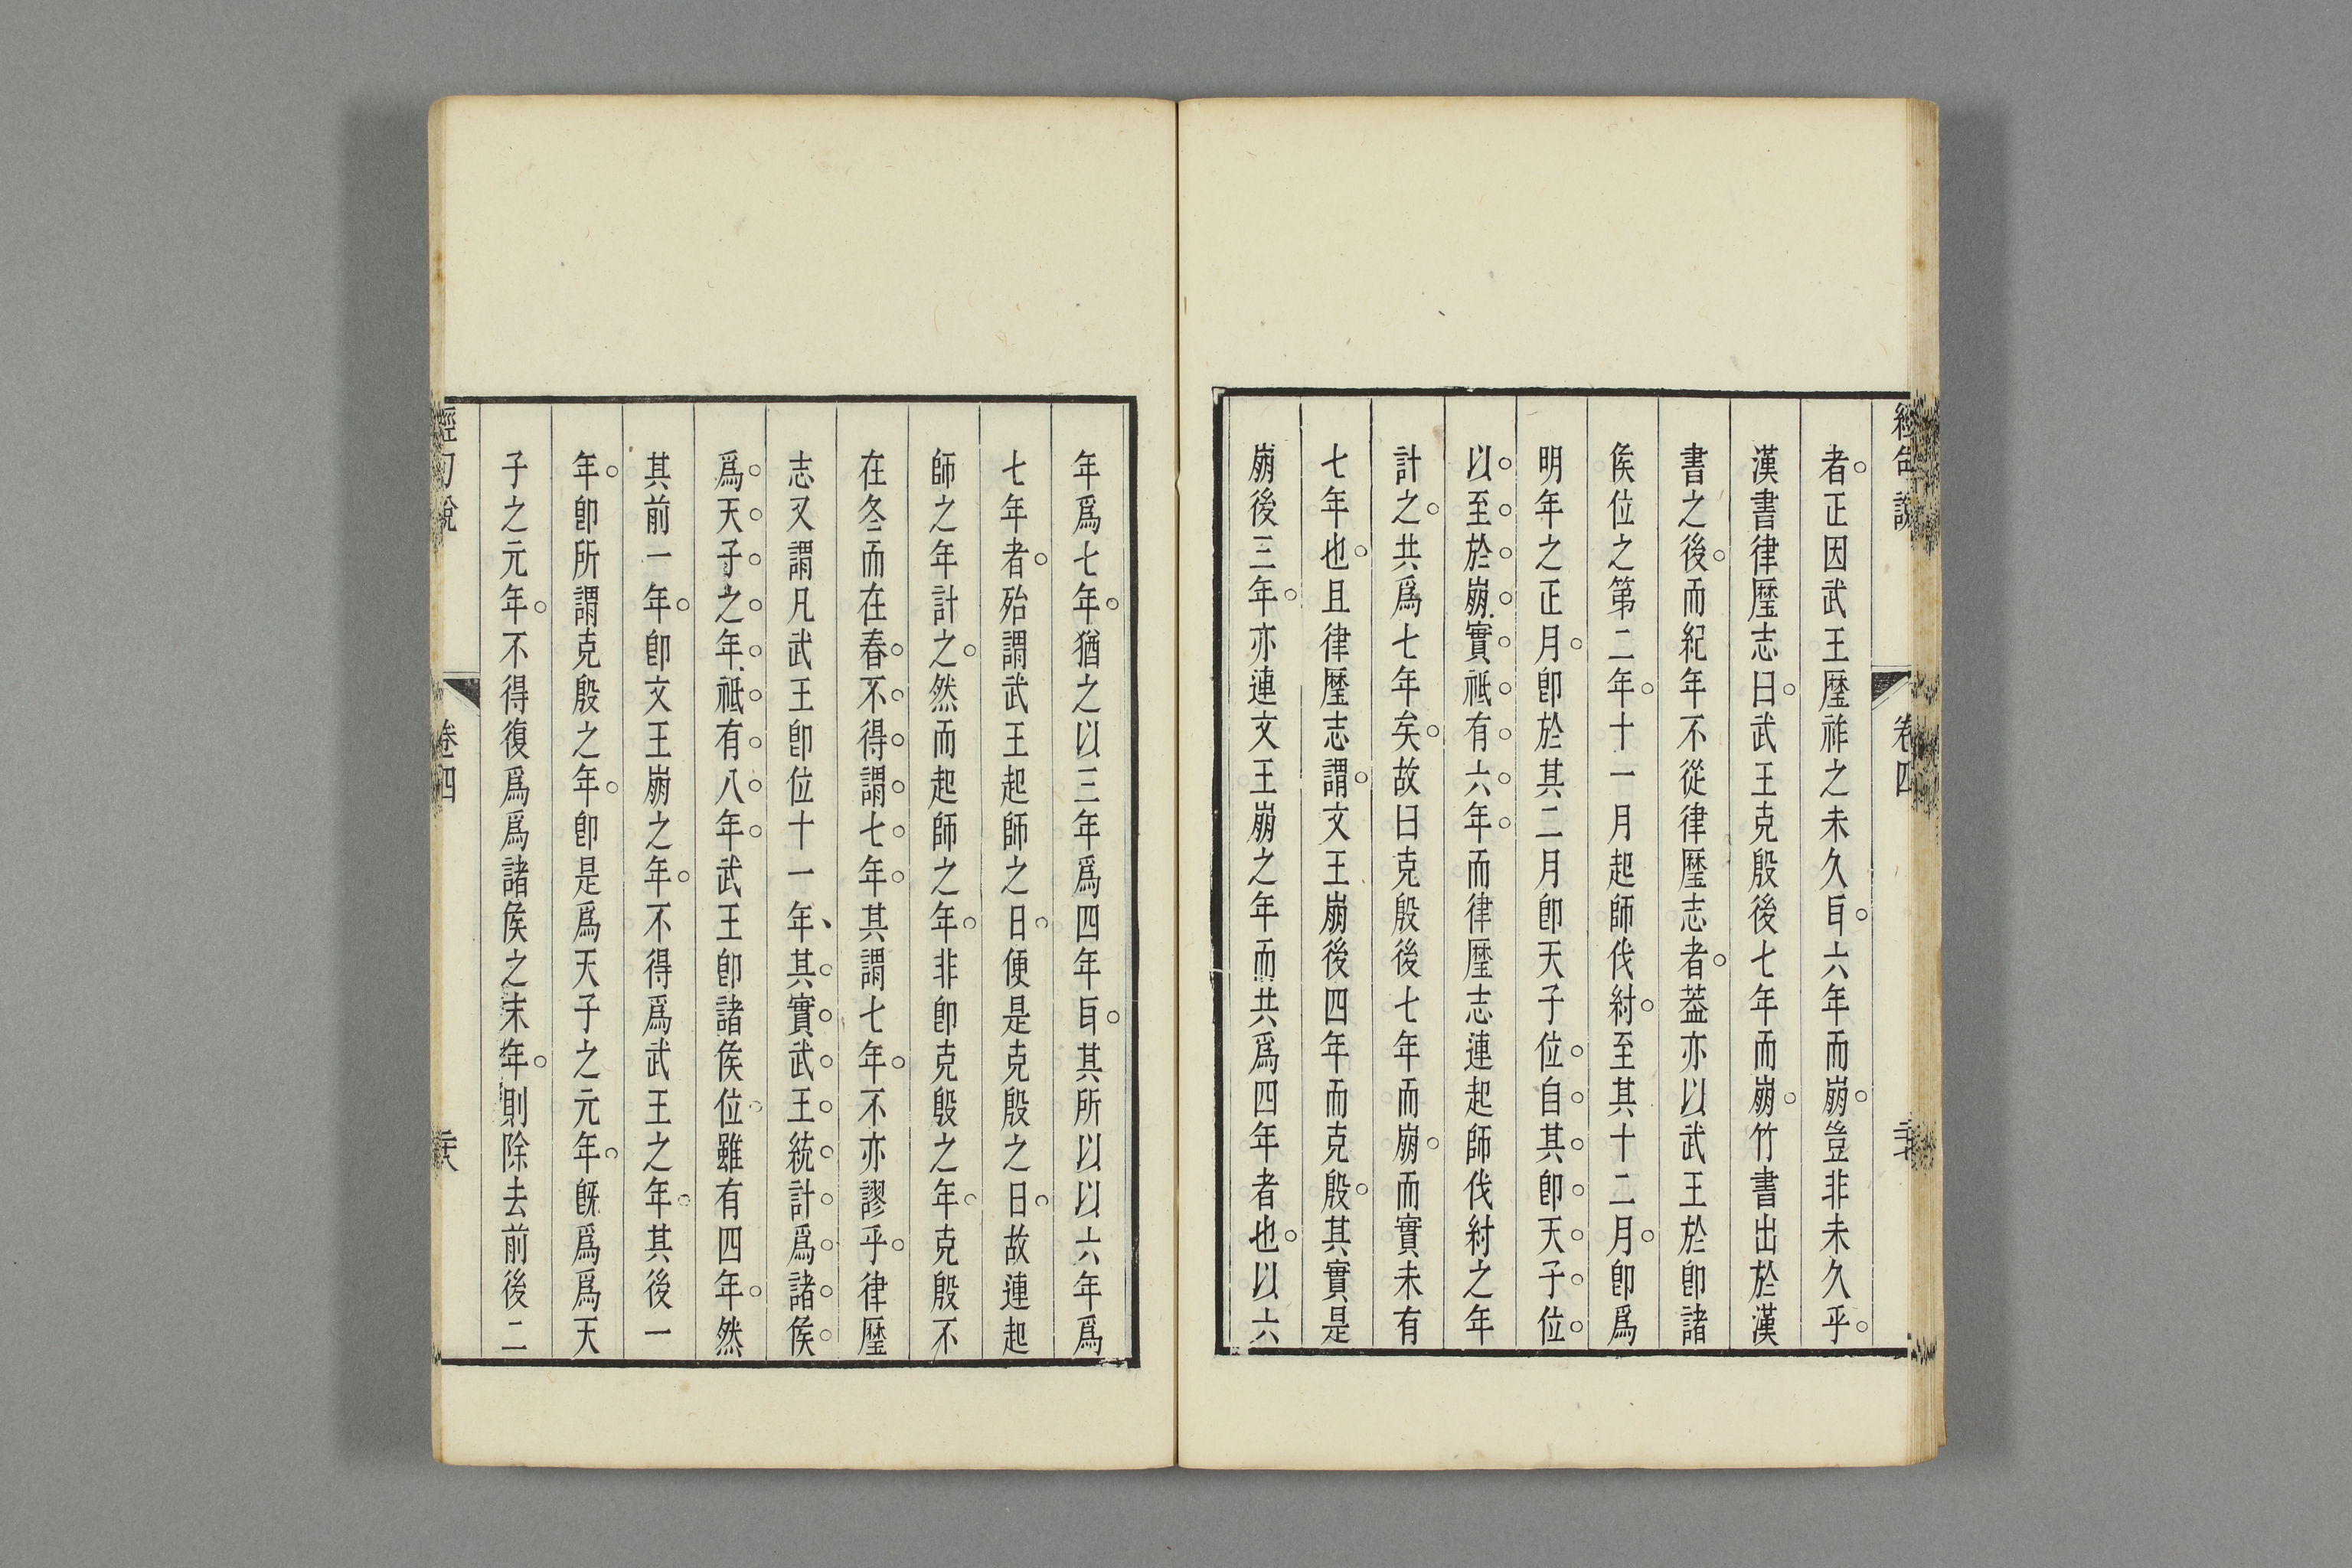 者正因武王歷祚之未久耳六年而崩豈非未久乎
漢書律歷志曰武王克殷後七年而崩竹書出於漢
書之後而紀年不從律歷志者葢亦以武王於卽諸
侯位之第二年十一月起師伐紂至其十二月卽爲
明年之正月卽於其二月卽天子位自其卽天子位
以至於崩實祗有六年而律歷志連起師伐紂之年
計之共爲七年矣故曰克殷後七年而崩而實未有
七年也且律歷志謂文王崩後四年而克殷其實是
崩後三年亦連文王崩之年而共爲四年者也以六
年爲七年猶之以三年爲四年耳其所以以六年爲
七年者殆謂武王起師之日便是克殷之日故連起
師之年計之然而起師之年非卽克殷之年克殷不
在冬而在春不得謂七年其謂七年不亦謬乎律歷
志又謂凡武王卽位十一年其實武王統計爲諸侯
爲天子之年祗有八年武王卽諸侯位雖有四年然
其前一年卽文王崩之年不得爲武王之年其後一
年卽所謂克殷之年卽是爲天子之元年旣爲爲天
子之元年不得復爲爲諸侯之末年則除去前後二
卷四